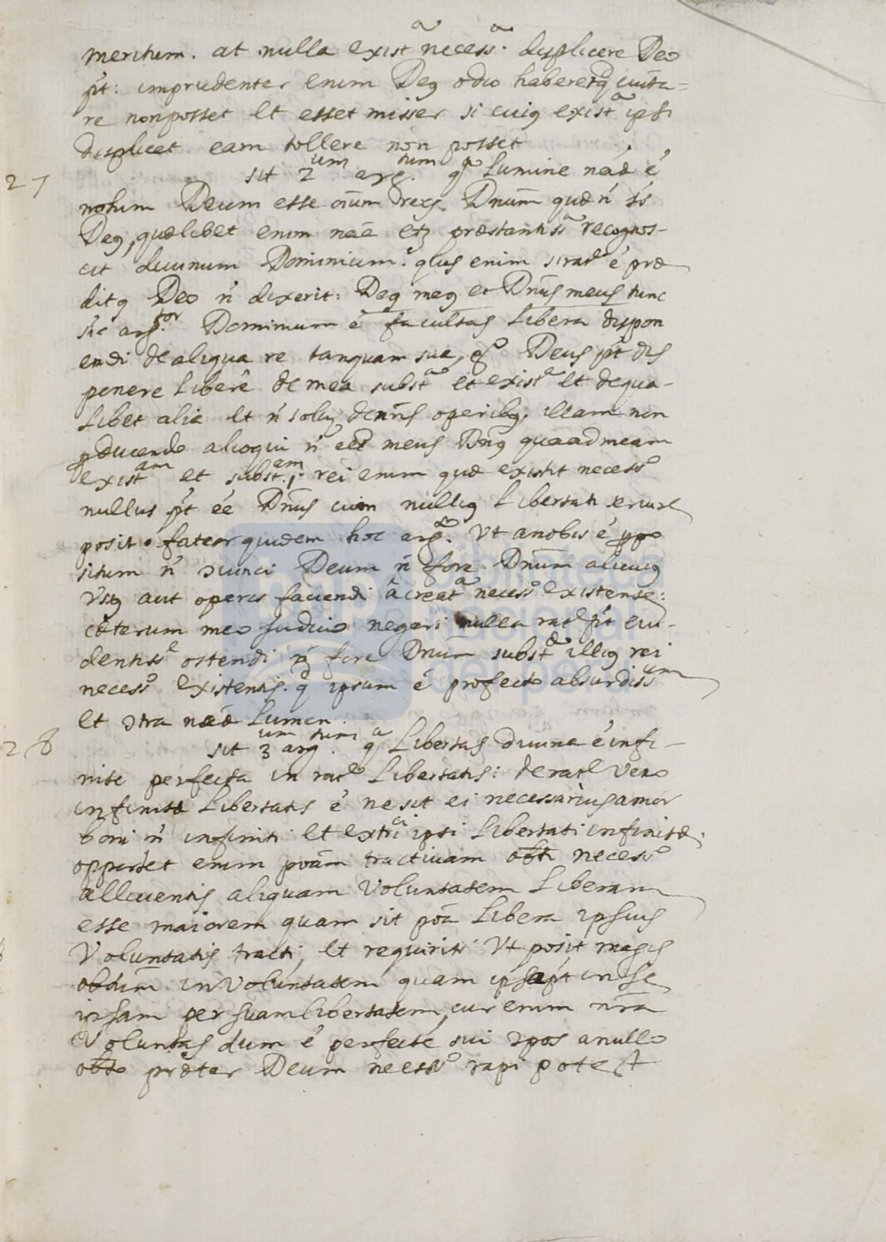 meritum. at nulla exist^a necess^a. displicere Deo
p̃t: imprudenter enim Deq odio haberet q̃ euita=
re non posset et esset misser si cuiq exist^a ipsi
displicet eam tollere non posset
27 sit 2^um arg^tum. q^a Lumine naæ é
notum Deum esse oium rerᵹ. Dnũm quæ ñ s̃t
Deq, quælibet enim naã etᵹ præstantiss^a recognos-
cit diuinum Dominium. quis enim si rat^e é præ
ditq Deo ñ dixerit: Deq meq et Dnũs meus tunc
sic arg^tor. Dominium é facultas Libera dispon
endi de aliqua re tanquam sua, g^o Deus p̃t dis
ponere Liberè de mea subst^a et exist^a et de qua-
Libet alia et ñ soluᵹ de nr̃is operibq. illam non
p̱ducendo alioqui ñ eét meus Dñq quoad meam
exist^am et subst^am. rei enim quæ existit necess^o
nullus p̃t eé Dnũs cum nulliq Libertati seruire
posit. fateor quidem hoc arg^o. Vt a nobis é p̱po
situm ñ ɔuinci Deum ñ fore Dnũm alicuiq
Vsq aut operis faciendi à creat^a necess^o existente:
cæterum meo Judicio negari nulla rat^e p̃t eui-
dentiss^e ostendi ñ fore Dnũm subst^æ illiq rei
necess^o existentis. q^d ipsum é profecto absurdiss^um
et ɔtra naæ Lumen.
28 sit 3^um arg^tum. q^a Libertas diuina é infi-
nite perfecta in rat^e Libertatis: de rat^e vero
infinitæ Libertatis é ne sit ei necessarius amor
boni ñ infiniti et extrĩci ipsi Libertati infinitæ.
opporset enim poãm tractiuam obti necess^o
allicientis aliquam Voluntatem Liberam
esse maiorem quam sit poã Libera ipsius
Voluntatis tracti, et requiriti Vt posit magis
obtũm in Voluntatem quam ipsa p̃t in se
ipsam per suam libertatem, cur enim nr̃a
Voluntas dum é perfecte sui ɔpos a nullo
obto præter Deum necess^o rapi potest